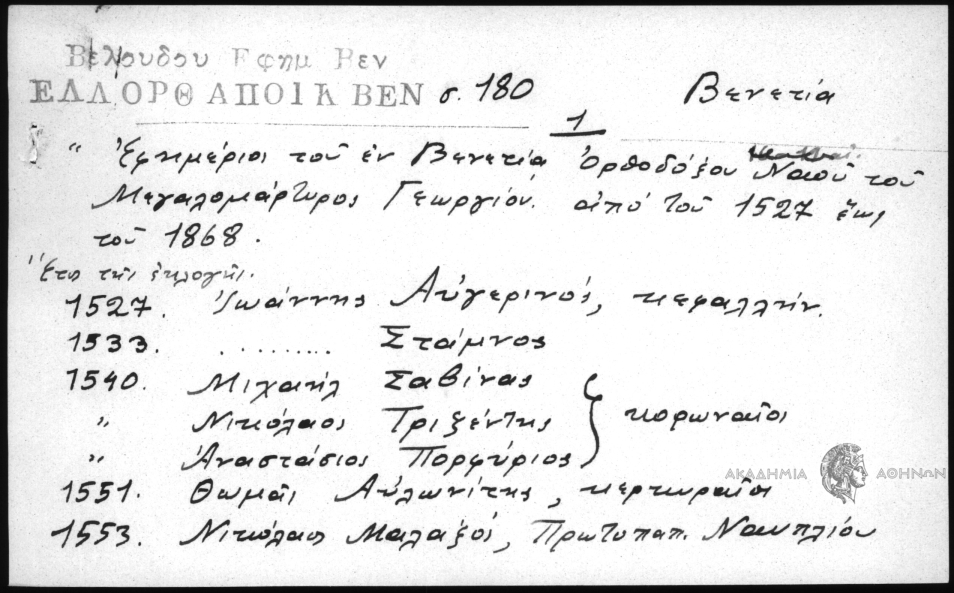 Βελουδου Εφημ Βεν
ΕΛΛ ΟΡΘ ΑΠΟΙΚ ΒΕΝ σ. 180
Βενετία
1
" Ἐφημέριοι τοῦ ἐν Βενετίᾳ Ὀρθοδόξου Ναοῦ τοῦ
Μεγαλομάρτυρος Γεωργίου. ἀπό τοῦ 1527 ἕως
τοῦ 1868.
Ἔτος τῆς ἐκλογῆς.
1527. Ἰωάννης Αὐγερινός, κεφαλλήν.
1533. ......... Στάμνος
1540. Μιχαήλ Σαβίνας
" Νικόλαος Τριξέντης } κορωναῖοι
" Ἀναστάσιος Πορφύριος
1551. Θωμᾶς Αὐλωνίτης, κερκυραῖος
1553. Νικόλαος Μαλαξός, Πρωτοπαπ. Ναυπλίου
ΑΚΑΔΗΜΙΑ ΑΘΗΝΩΝ